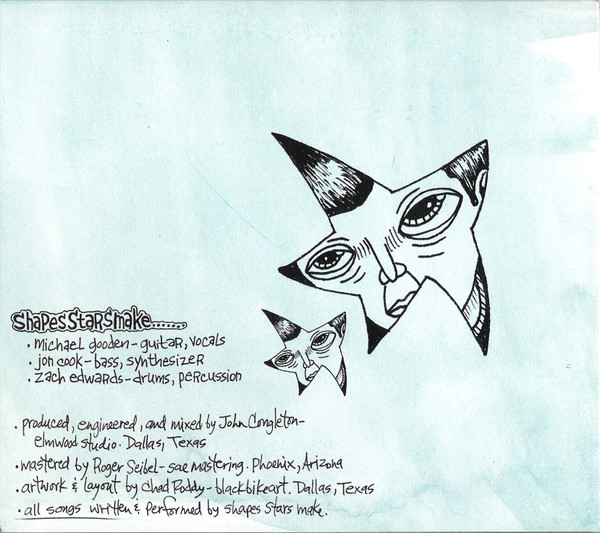 shapes stars make......
· michael gooden - guitar, vocals
· jon cook - bass, synthesizer
· zach edwards - drums, percussion
· produced, engineered, and mixed by John Congleton -
elmwood studio. Dallas, Texas
· mastered by Roger Seibel - sae mastering. Phoenix, Arizona
· artwork & layout by Chad Roddy - blackbikeart. Dallas, Texas
· all songs written & performed by shapes stars make.